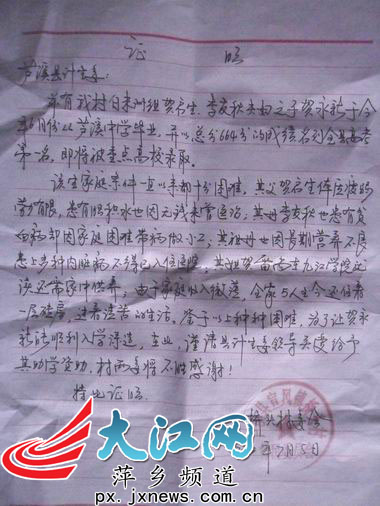 证 明
芦溪县计生委:
兹有我村白末州组贺启生、李友秋夫妇之子贺永新于今
年6月份从芦溪中学毕业,并以总分664分的成绩名列全县高考
第一名,即将被重点高校录取。
该生家庭条件一直以来都十分困难,其父贺启生体质
劳力有限,患有眼积水也因无钱未曾医治;其母李友秋也患有贫
血病却因家庭困难带病做小工;其祖母也因长期营养不良
患上多种内脏病不得已入住医院,其姐贺 尚在九江学院还
读还需家中供养。由于家庭收入微薄,全家5人至今还住着
一层砖房,过着清苦的生活。鉴于以上种种困难,为了让贺永
新能顺利入学深造,立业,谨请县计生委领导关爱给予
其助学资助,村两委将不胜感谢!
特此证明。
村委会
年7月5日
大江网
萍乡频道
px.jxnews.com.cn